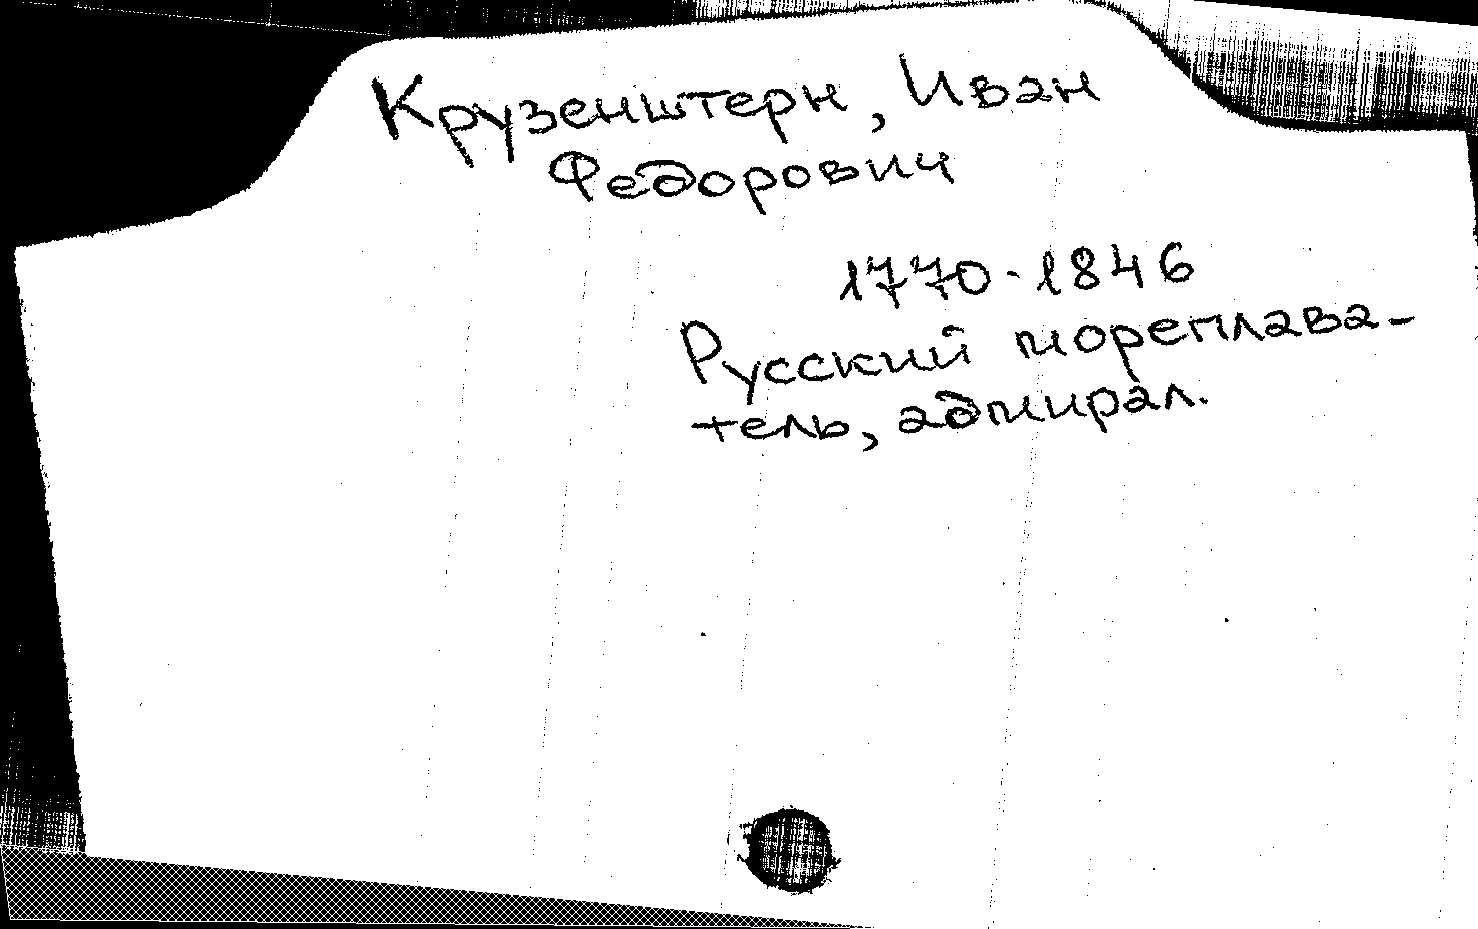 Крузенштерн, Иван
Федорович
1770-1846
Русский мореплава-
тель, адмирал.